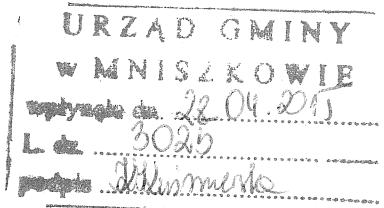 URZĄD GMINY
w MNISZKOWIE
wpłynęło dn. 22.04.2015
L. dz. 3025
podpis